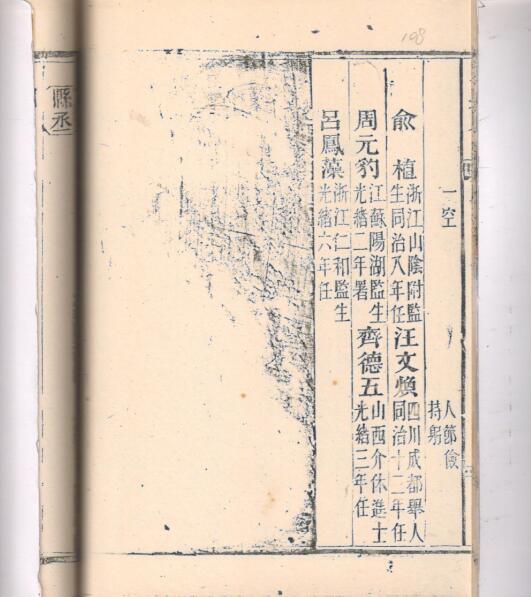 108
一空
人節儉
持躬
俞植
浙江山陰附監
生同治八年任
汪文煥
四川成都舉人
同治十二年任
周元豹
江蘇陽湖監生
光緒二年署
齊德五
山西介休進士
光緒三年任
呂鳳藻
浙江仁和監生
光緒六年任
縣丞